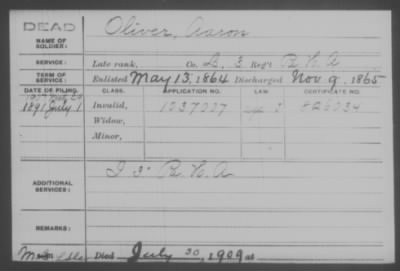 DEAD
NAME OF SOLDIER:
Oliver, Aaron
SERVICE:
Late rank, Co. L, 3 Reg't R.H.A
TERM OF SERVICE:
Enlisted May 13, 1864 Discharged Nov 9, 1865
DATE OF FILING. CLASS. APPLICATION NO. LAW. CERTIFICATE NO.
1891 July 1 Invalid,
Widow,
Minor,
ADDITIONAL SERVICES:
I 3" R.H.A
REMARKS:
Died July 30, 1909 at